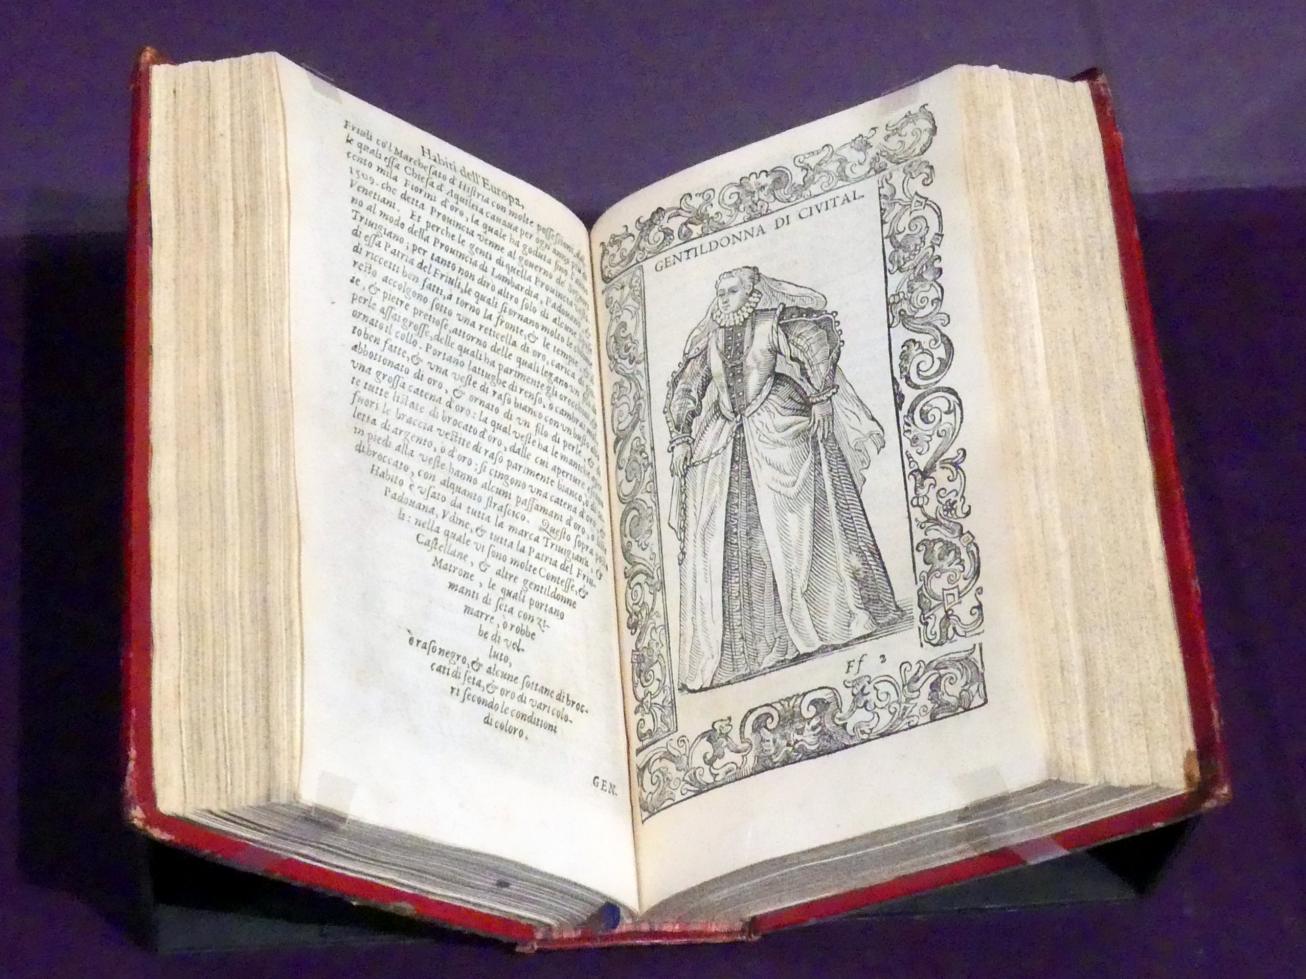 Habiti dell'Europa,
Friuli co'l Marchesato d'Histria con molte possessioni,
le quali essa Chiesa d'Aquileia cauaua per ogni anno
cento mila Fiorini d'oro, la quale ha goduta fino l'anno
1509. che detta Prouincia venne al gouerno de'
Venetiani. Et perche le genti di quella Prouincia
no al modo della Prouincia di Lombardia, Padouana,
Triuigiano; per tanto non diro altro solo di alcune
di essa Patria del Friuli, le quali s'ornano molto le
di riccetti ben fatti, a torno la fronte, & le tempie
resto accolgono sotto una reticella di oro, carica di
le, & pietre pretiose, attorno delle quali legano un
perle assai grosse, delle quali ha parimente gli orecchini
ornato il collo. Portano lattughe di renso, o cambrai
to ben fatte, & una veste di raso bianco con un busto
abbottonato di oro, & ornato di un filo di perle, &
una grossa catena d'oro: la qual veste ha le maniche
te tutte listate di brocato d'oro, dalle cui aperture
fuori le braccia vestite di raso parimente bianco,
letta di argento, o d'oro: si cingono una catena d'oro
in piedi alla veste hanno alcuni passamani d'oro, o
di broccato, con alquanto strascico. Questo sopra
Habito è vsato da tutta la marca Triuigiana, &
Padouana, Vdine, & tutta la Patria del Friu-
li: nella quale vi sono molte Contesse, &
Castellane, & altre gentildonne
Matrone, le quali portano
manti di seta con Zi-
marre, o robbe
be di vel-
luto,
o raso negro, & alcune sottane di broc-
cati di seta, & oro di vari colo-
ri secondo le conditioni
di coloro.
GEN-
GENTILDONNA DI CIVITAL.
Ff 3